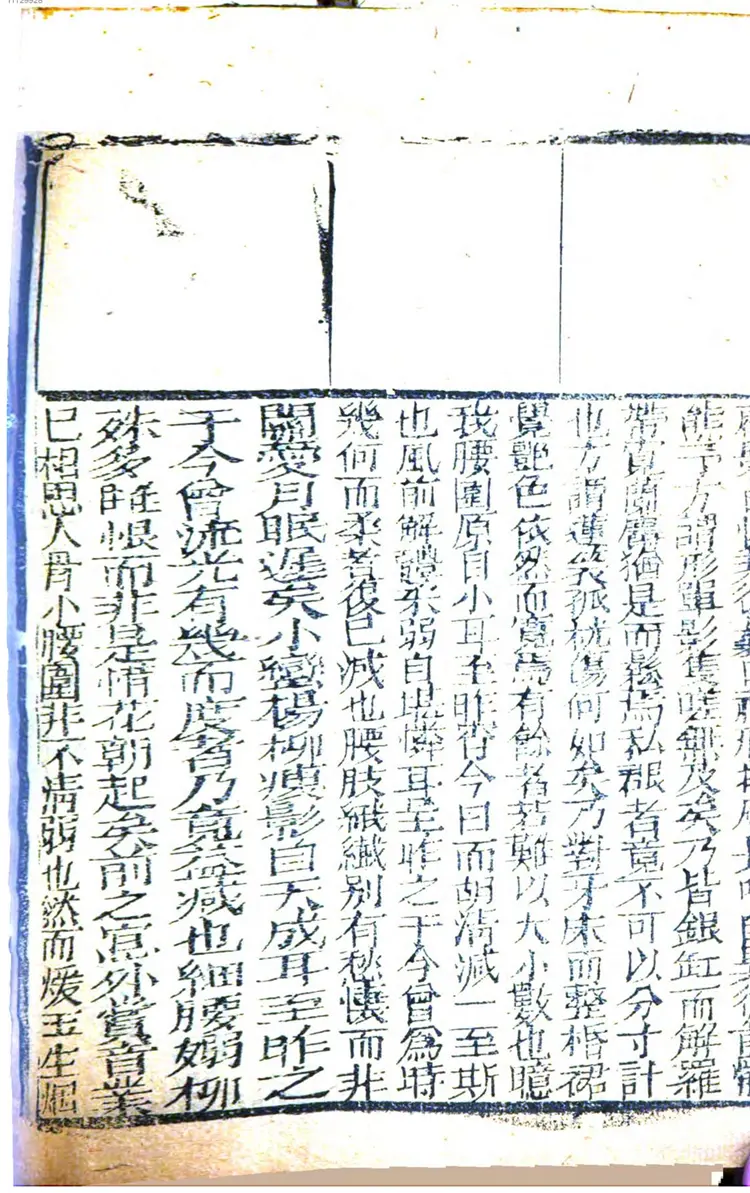 方謂形單影隻嗟無及矣乃皆銀缸而解羅
帶寬蘭麝猶是而鬆焉私者竟不可以分寸計
也方謂蓮笑孤枕傷何如矣乃對牙床而整裙
覺艷色依然而寬焉有餘者若難以大小數也臆
我腰圍原自小耳至昨宵今日而胡清減一至斯
也風前解體柔弱自堪憐耳至昨之于今曾為時
幾何而柔者復已減也腰肢纖纖別有愁懷而非
關愛月眠遲矣小蠻楊柳瘦影自天成耳至昨之
于今曾流光有幾而度者乃竟益減也細腰嫋柳
殊多離恨而非是惜花朝起矣前之意外賞音業
已相思入骨小腰圍非不清弱也然而煖玉生烟